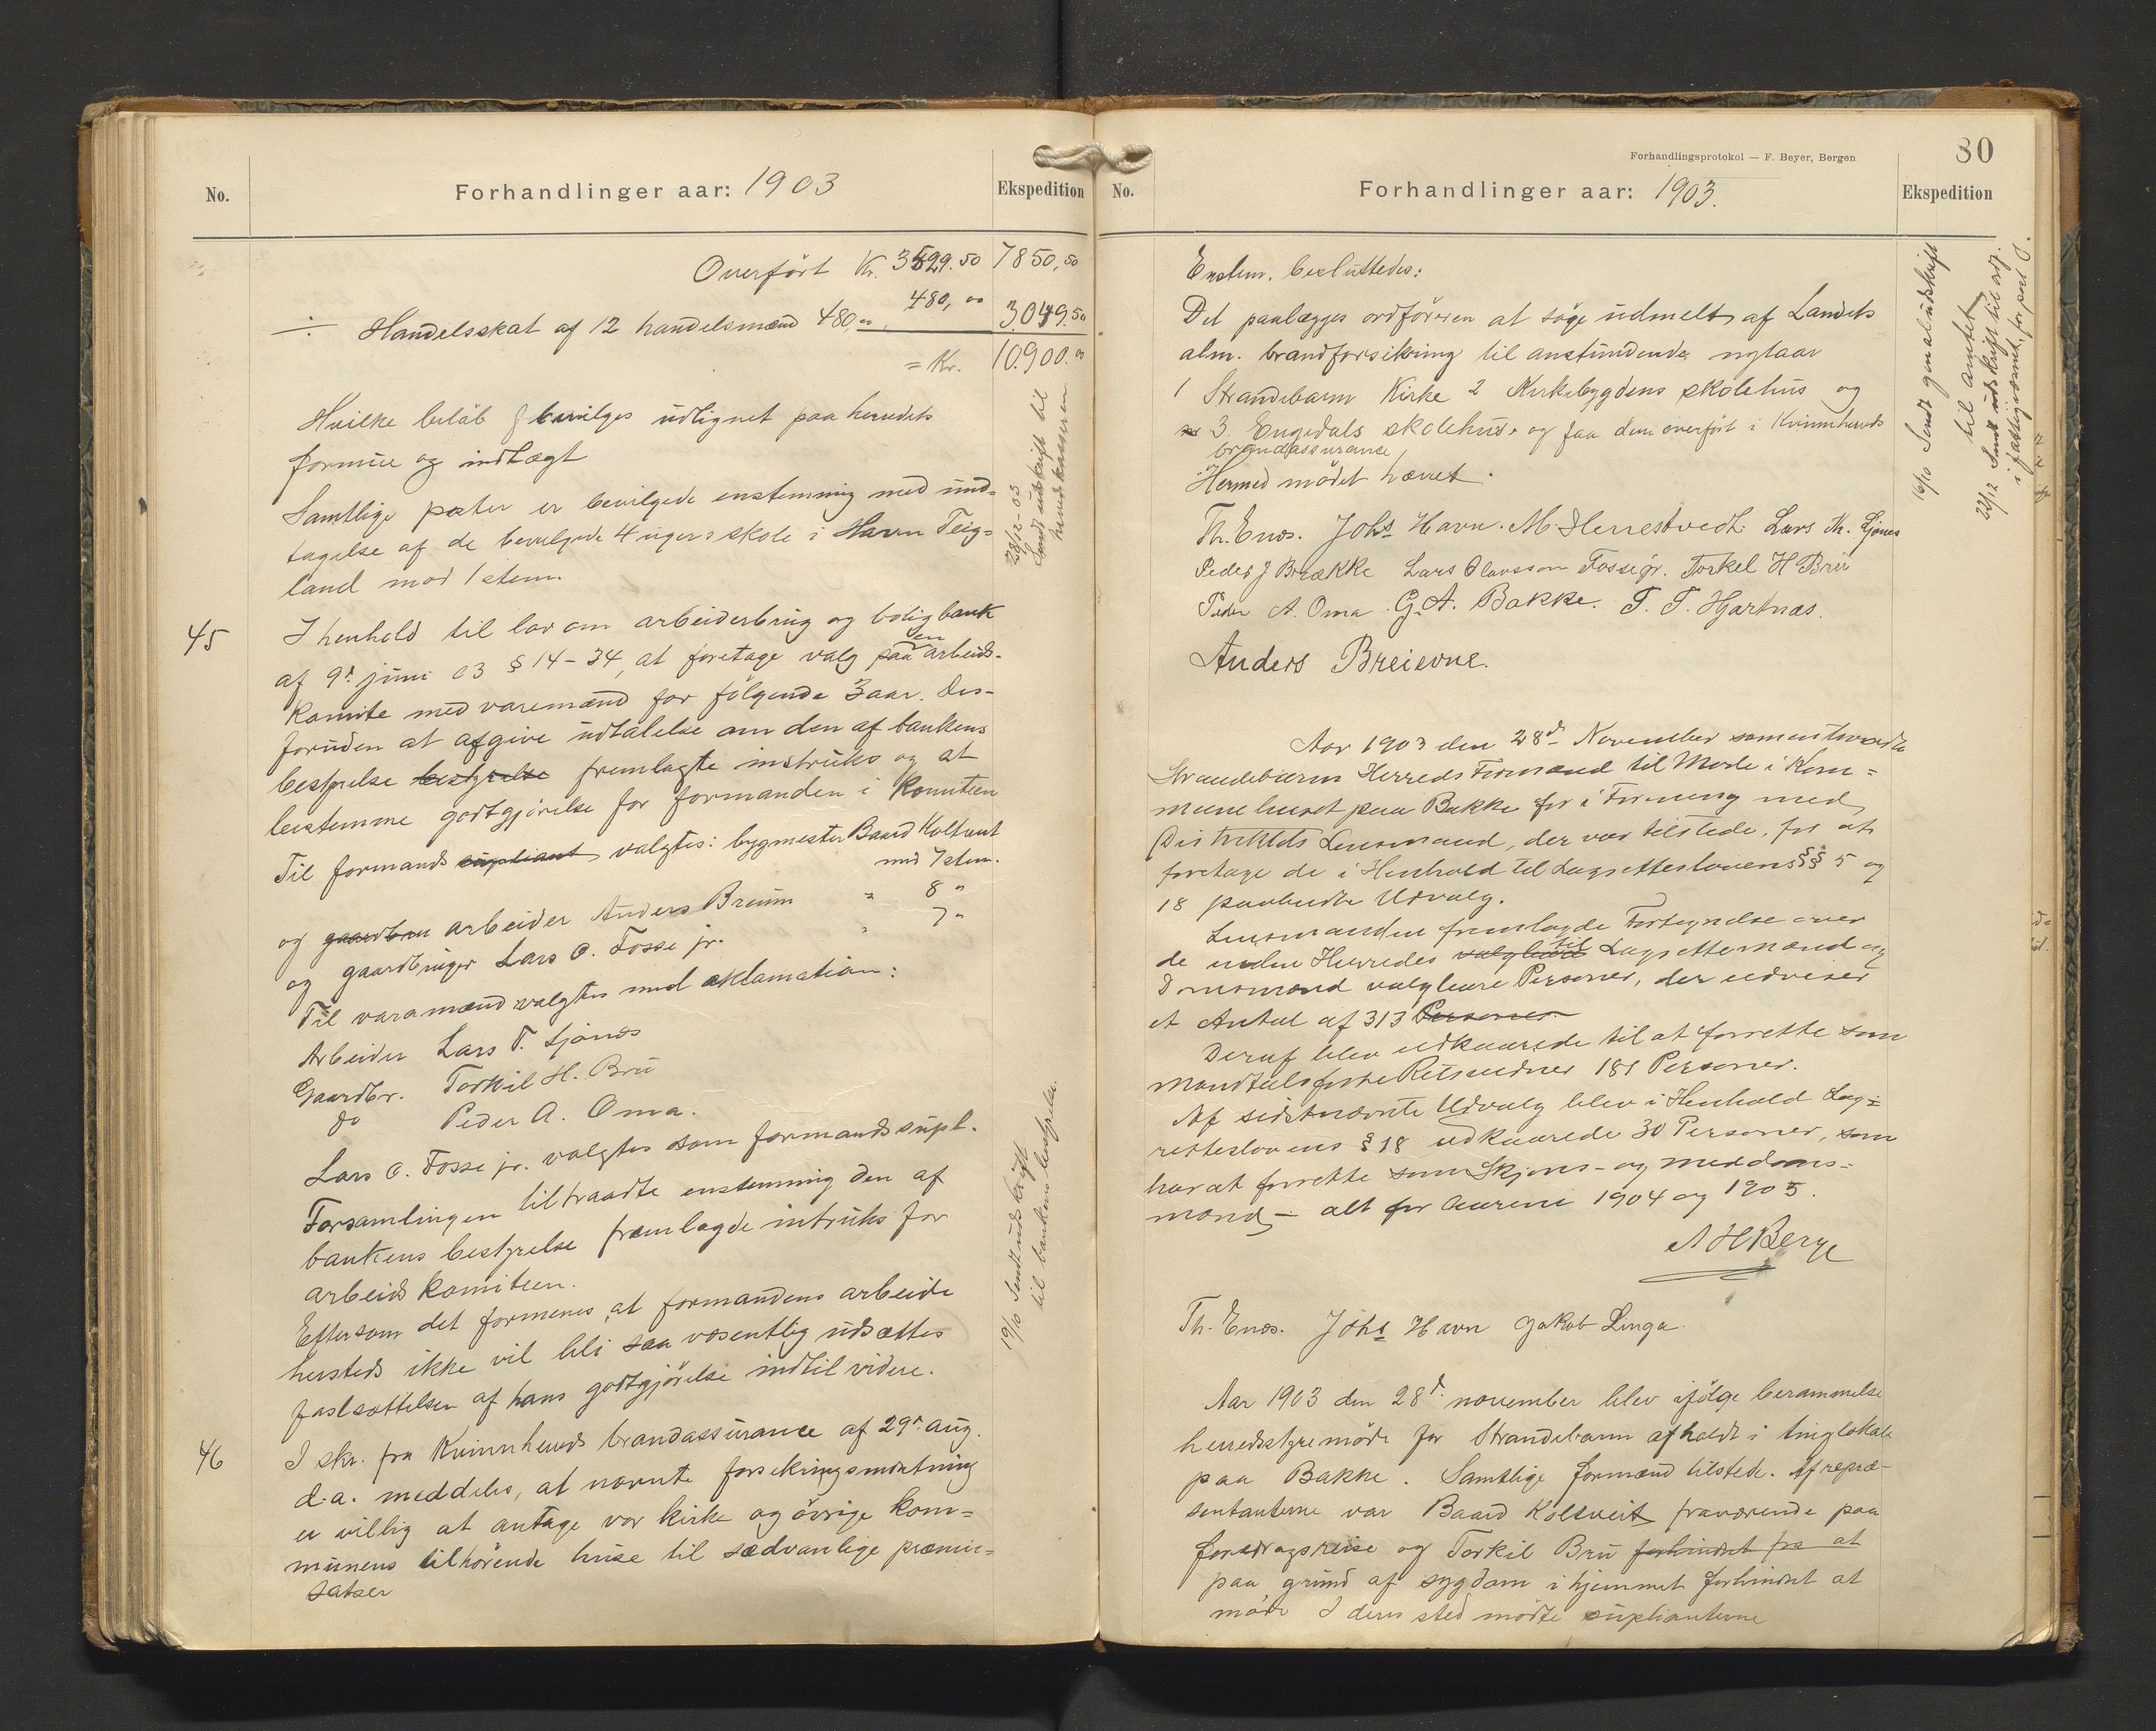 No.
Forhandlinger aar: 1903
Ekspedition
Overført Kr. 3529.50 7850,50
÷ Handelsskat af 12 handelsmænd 480,00 480,00 3.049.50
= Kr. 10900.00
Hvilke beløb bevilges udlignet paa herredets
formue og indtægt
Samtlige poster er bevilgede enstemmig med und-
tagelse af de bevilgede 4 ugers skole i Havn Teig-
land mod 1 stem.
28/12-03 Sendt udskrift til
herredskassereren
45 I henhold til lov om arbeiderbrug og boligbank
af 9d juni 03 § 14-34, at foretage valg paa en arbeids-
komite med varemænd for følgende 3 aar. Des-
foruden at afgive udtalelse om den af bankens
bestyrelse bestyrelse fremlagte instruks og at
bestemme godtgjørelse for formanden i komiteen
Til formands supliant valgtes: bygmester Baard Koltveit
med 7 stem.
og gaardbru arbeider Anders Breum " 8 "
og gaardbruger Lars O. Fosse jr. " 7 "
Til varamænd valgtes med aklamation:
Arbeider Lars T. Ljones
Gaardbr. Torkil H. Bru
do Peder A. Oma.
Lars O. Fosse jr. valgtes som formandssupl.
Forsamlingen tiltraadte enstemmig den af
bankens bestyrelse fremlagde intruks for
arbeidskomiteen.
Eftersom det formenes, at formandens arbeide
hersteds ikke vil bli saa væsentlig udsættes
fastsættelsen af hans godtgjørelse indtil videre.
19/10 Sendt udskrift
til bankens bestyrelse.
46 I skr. fra Kvinnherreds brandassurance af 29d aug.
d.a. meddeles, at nævnte forsikringsindretning
er villig at antage vor kirke og øvrige kom=
munens tilhørende huse til sædvanlige præmie=
satser
Forhandlingsprotokol — F. Beyer, Bergen
80
No.
Forhandlinger aar: 1903.
Ekspedition
Enstem. besluttedes:
Det paalægges ordføreren at søge udmelt af Landets
alm. brandforsikring til anstundende nytaar
1 Strandebarm Kirke 2 Kirkebygdens skolehus og
3. Engedals skolehus og faa dem overført i Kvinnherreds
brandassurance
Hermed mødet hævet.
16/10 Sendt genaludskrift
til amtet
22/12 Sendt udskrift til ordf.
Th. Enes. Johs Havn. M Herrestvedt. Lars M. Ljones
Peder J Brække Lars Olavsson Fosse jr. Torkel H Bru
Peder A. Oma G. A. Bakke. T. T. Hjartnæs.
Anders Breievne.
Aar 1903 den 28d November sammentraadte
Strandebarm Herreds Formænd til Møde i Kom=
munehuset paa Bakke for i Forening med
Distriktets Lensmand, der var tilstede, for at
foretage de i Henhold til Lagretteslovens §§ 5 og
18 paabudte Udvalg.
Lensmanden fremlagde Fortegnelse over
de inden Herredet valgbare til Lagrettemænd og
Domsmænd valgbare Personer, der udviser
et Antal af 313 Personer.
Deraf blev udkaarede til at forrette som
mandtalsførte Retsvidner 181 Personer.
Af sidstnævnte Udvalg blev i Henhold Lag=
retteslovens § 18 udkaarede 30 Personer, som
har at forrette som Skjøns- og meddoms=
mænd – alt for Aarene 1904 og 1905.
A H Berge
Th. Enes. Johs Havn Jakob Linga.
Aar 1903 den 28d november blev ifølge berammelse
herredsstyremøde for Strandebarm afholdt i tinglokalet
paa Bakke. Samtlige formænd tilstede. Af repræ-
sentanterne var Baard Koltveit fraværende paa
foredragsreise og Torkil Bru forhindret fra at
paa grund af sygdom i hjemmet forhindret at
møde I deres sted mødte suplianterne